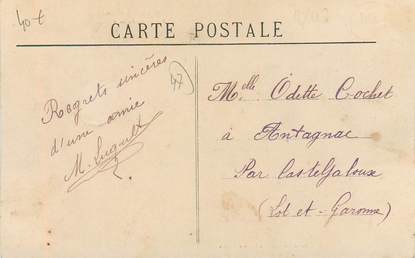 40 €
CARTE POSTALE
47
Regrets sincères
d'une amie
M.
Melle Odette Cochet
à Antagnac
Par Casteljaloux
(Lot et-Garonne)